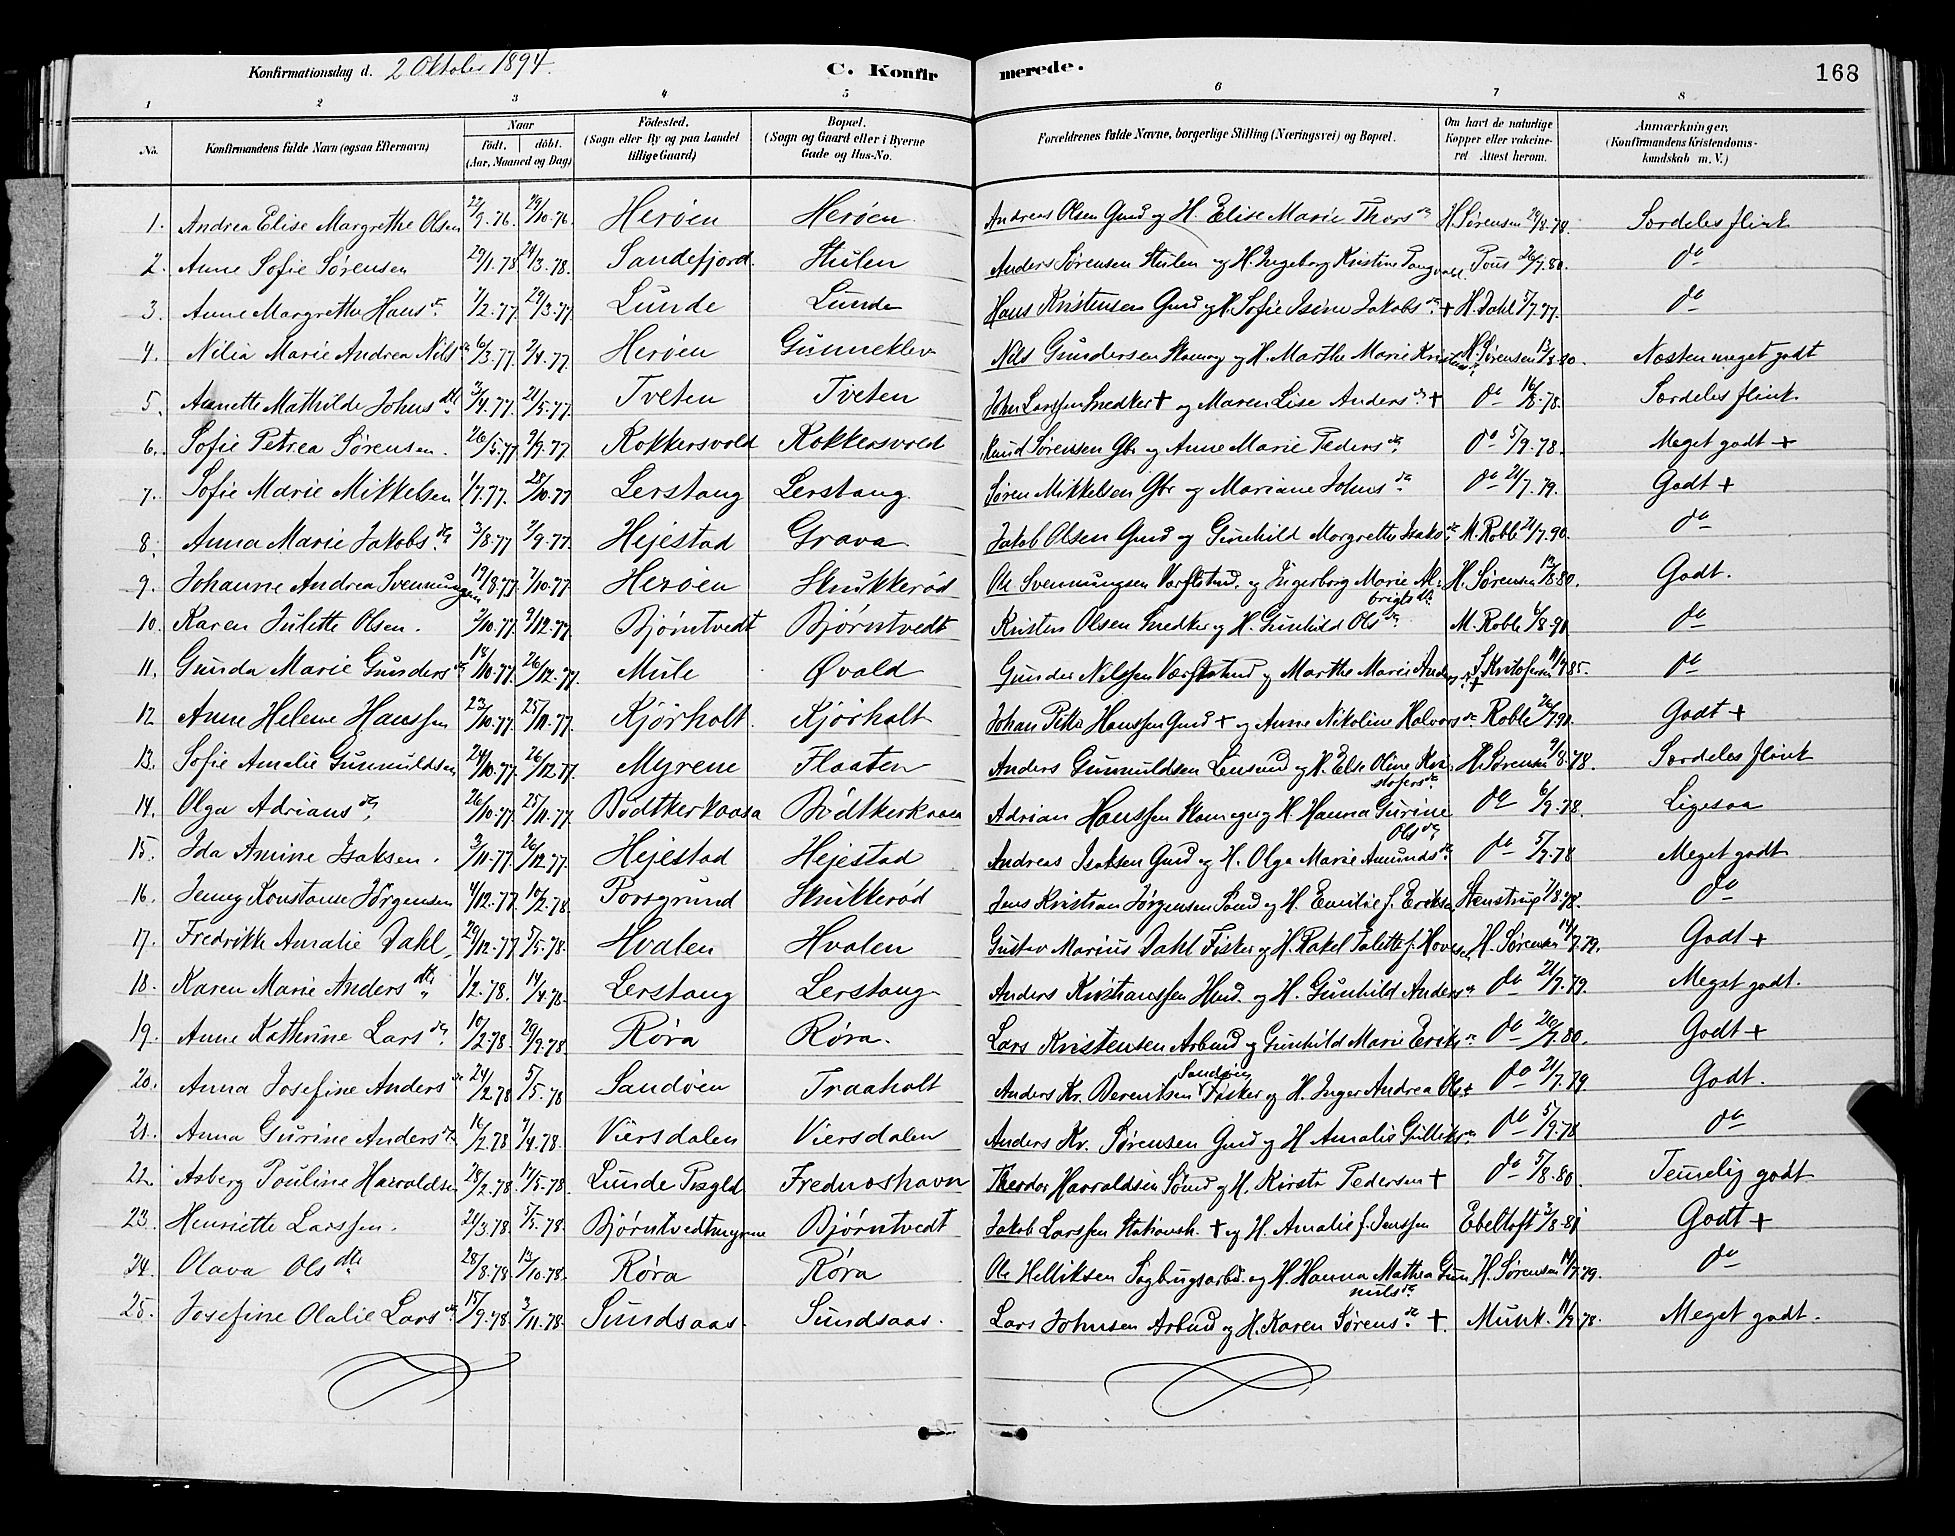 Konfirmationsdag d. 2 Oktober 1894.
C. Konfirmerede.
168
1 2 3 4 5 6 7 8
No. Konfirmandens fulde Navn (ogsaa Efternavn) Naar födt. döbt. (Aar, Maaned og Dag) Födested. (Sogn eller By og paa Landet tillige Gaard) Bopæl. (Sogn og Gaard eller i Byerne Gade og Hus-No. Forældrenes fulde Navne, borgerlige Stilling (Næringsvei) og Bopæl. Om havt de naturlige Kopper eller vakcineret Attest herom. Anmærkninger. (Konfirmandens Kristendomskundskab m. V.)
1. Andrea Elise Margrethe Olsen 27/9.76. 29/10.76. Herøen Herøen Andreas Olsen Gmd og H. Elise Marie Thors dr H. Sørensen 29/8.78. Særdeles flink
2. Anne Sofie Sørensen 29/1.78 24/3.78. Sandefjord. Stulen Anders Sørensen Stulen og H. Ingeborg Kristine Tangvald Tous 26/7.80. do
3. Anne Margrethe Hans dr. 7/2.77 29/3.77 Lunde Lunde Hans Kristensen Gmd og H. Sofie Isine Jakobs dr + H. Dahl 5/7.77. do
4. Nilia Marie Andrea Nils dr 6/3.77. 2/4.77. Herøen Gunneklev Nils Gundersen Skomag og H. Marthe Marie Kristens dr H. Sørensen 13/8.80. Næsten meget godt
5. Anette Mathilde Johns dtr 3/4.77. 21/5.77. Tveten Tveten John Larssen Snedker + og Maren Lise Anders dr + do 16/8.78. Særdeles flink.
6. Sofie Petrea Sørensen. 26/5.77 9/9.77. Kokkersvold Kokkersvold Knud Sørensen Gbr og Anne Marie Peders dr. do 5/9.78. Meget godt +
7. Sofie Marie Mikkelsen 1/7.77. 28/10.77 Lerstang Lerstang. Søren Mikkelsen Gbr og Mariane Johns dr do 21/7.79. Godt +
8. Anna Marie Jakobs dr 3/8.77 2/9.77. Hejestad Grava Jakob Olsen Gmd og Gunhild Margrethe Isaks dr. M. Roble 21/7.90. do
9. Johanne Andrea Svennungsen 19/8.77 7/10.77. Herøen Skrukkerød Ole Svennungsen Værftstmd. og Ingerborg Marie Albrigts dtr. H. Sørensen 13/8.80. Godt.
10. Karen Julette Olsen. 3/10.77. 9/12.77. Bjørntvedt Bjørntvedt Kristen Olsen Snedker og H. Gunhild Ols dr M. Roble 6/8.91 do
11. Gunda Marie Gunders dr 18/10.77. 26/12.77. Mule Øvald Gunder Nilssen Værftstmd og Marthe Marie Anders dr + S. Kristofersen 11/7.85. do
12 Anne Helene Hanssen 23/10.77. 25/11.77. Kjørholt. Kjørholt Johan Petter Hanssen Gmd + og Anne Nikoline Halvors dr Roble 26/7.90. Godt +
13. Sofie Amalie Gunnuldsen 24/10.77. 26/12.77. Myrene Flaaten Anders Gunnuldsen Lensmd og H. Else Oline Kristofers dr H. Sørensen 9/8.78. Særdeles flink
14. Olga Adrians dr. 26/10.77. 25/11.77. Bødtkerkaasa Bødtkerkaasa Adrian Hanssen Skomager og H. Hanna Gurine Ols dr do 6/9.78. Ligesaa
15. Ida Amine Isaksen. 3/11.77. 26/12.77. Hejestad Hejestad Andreas Isaksen Gmd og H. Olga Marie Amunds dr. do 5/7.78 Meget godt
16. Jenny Konstanse Jørgensen 4/12.77. 10/2.78. Porsgrund Skrukkerød Jens Kristian Jørgensen Sømd og H. Emilie f. Eriksen Stenstrup 7/8.78. do
17. Fredrikke Amalie Dahl. 29/12.77 5/5.78. Hvalen Hvalen Gustav Marius Dahl Fisker og H. Rakel Talette f. Hovesen H. Sørensen 14/7.79. Godt +
18. Karen Marie Anders dtr. 1/2.78. 14/4.78. Lerstang Lerstang Anders Kristianssen Hmd. og H. Gunhild Anders dr do 21/7.79. Meget godt.
19. Anne Kathrine Lars dr. 10/2.78 29/9.78 Røra Røra. Lars Kristensen Arbmd og Gunhild Marie Eriks dr do 20/7.80. Godt +
20. Anna Josefine Anders dr 24/2.78 5/5.78 Sandøen Traaholt Anders Kr. Berentsen Sandøen Fisker og H. Inger Andrea Ols dr do 21/7.79. Godt.
21. Anna Gurine Anders dr. 16/2.78 7/4.78. Viersdalen Viersdalen Anders Kr. Sørensen Gmd og H Amalie Gulliks dr. do 5/9.78 do
22. Asberg Pouline Harroldsen 28/2.78. 14/5.78. Lunde Prægld Frednoshavn Theodor Harroldsen Sømd og H. Kirste Pedersen + do 5/8.80. Temelig godt
23. Henriette Larssen. 21/3.78. 5/5.78. Bjørntvedtmyrene Bjørntvedt Jakob Larssen Stationsk. + og H. Amalie f. Jenssen Ebeltoft 3/8.81 Godt +
24. Olava Ols dtr 28/8.78 13/10.78. Røra Røra Ole Helliksen Sagbrugsarbd. og H. Hanna Mathea Gunnuls dr H. Sørensen 14/7.79. do
25. Josefine Olalie Lars dr. 15/9.78. 3/11.78. Sundsaas. Sundsaas. Lars Johnsen Arbmd og H. Karen Sørens dr. +. Munk. 11/9.78. Meget godt.